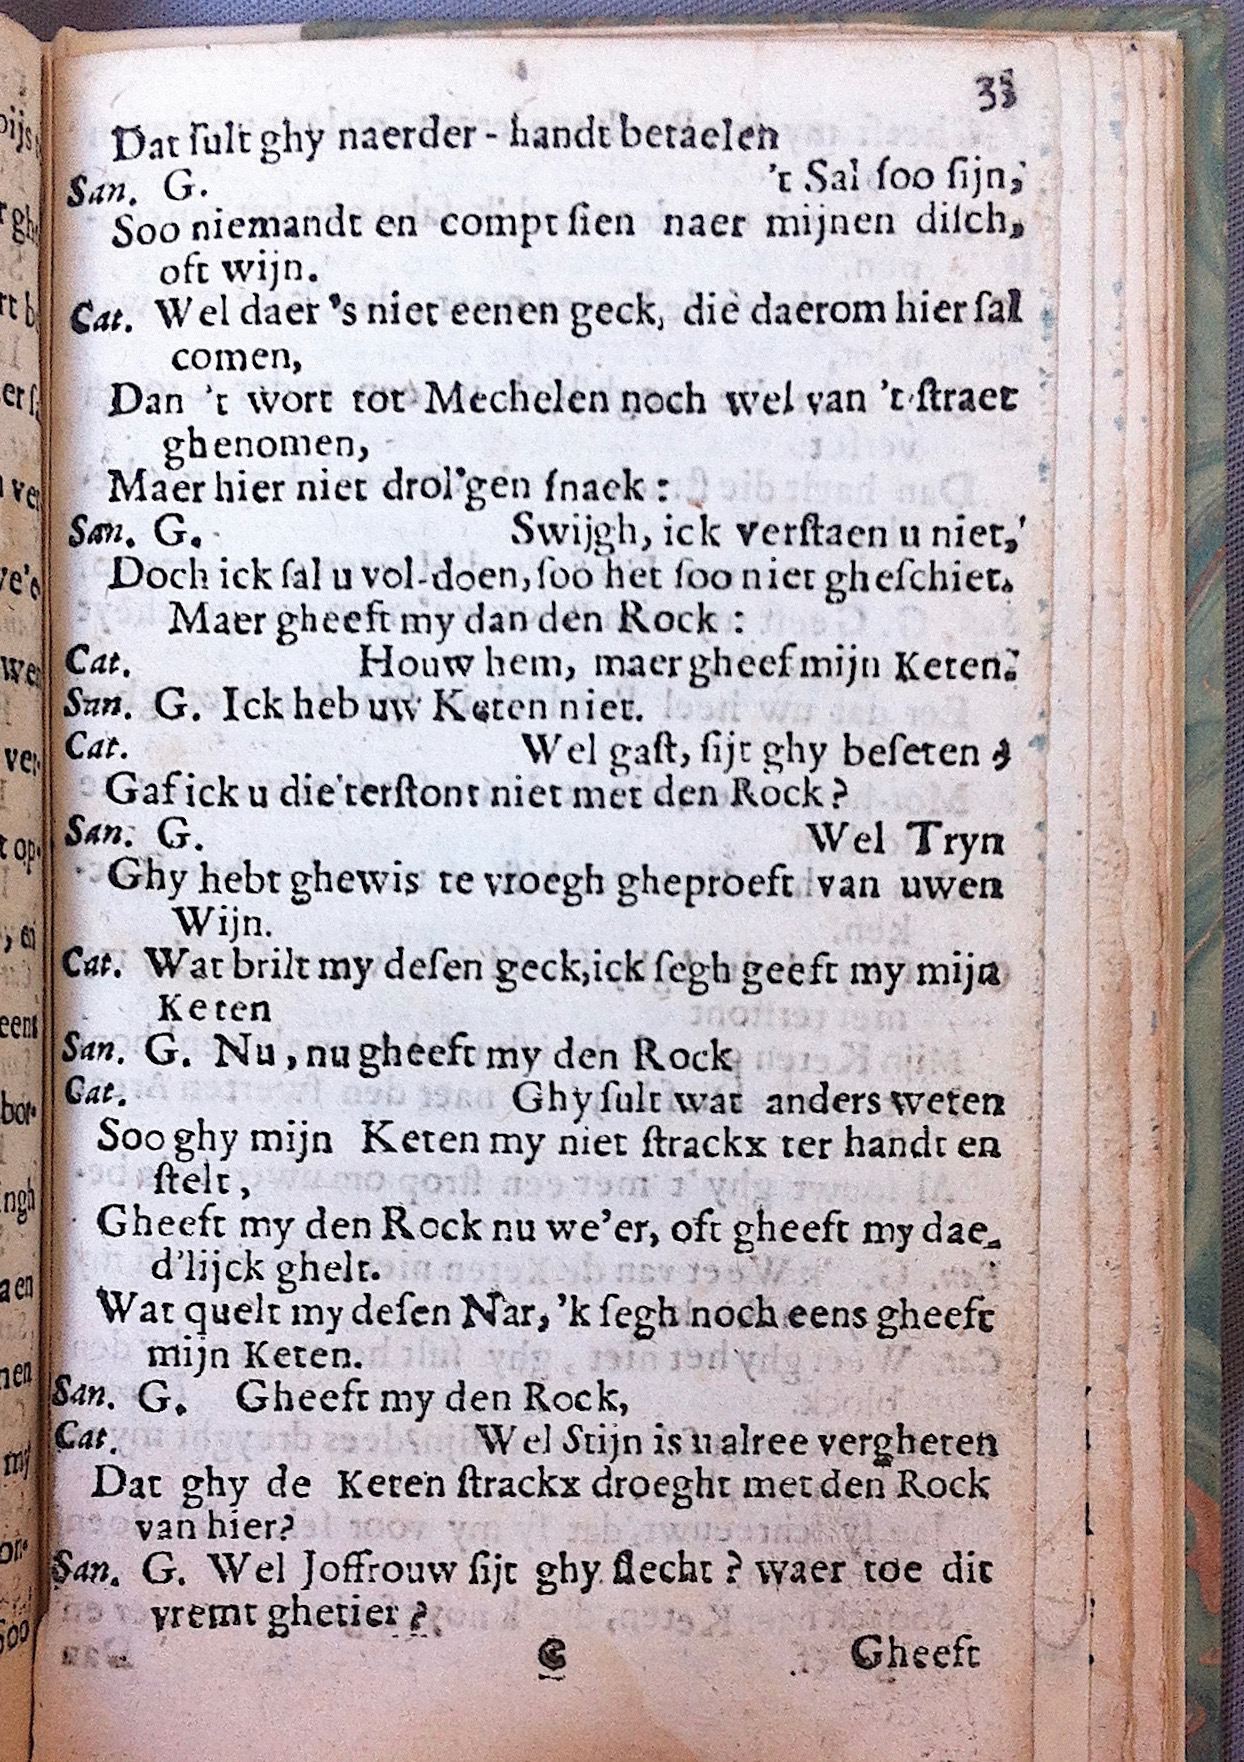 33
Dat ſult ghy naerder-handt betaelen
San. G. 't Sal ſoo ſijn,
Soo niemandt en compt ſien naer mijnen diſch,
oft wijn.
Cat. Wel daer 's niet eenen geck, die daerom hier ſal
comen,
Dan 't wort tot Mechelen noch wel van 't ſtraet
ghenomen,
Maer hier niet drol'gen ſnaek:
San. G. Swijgh, ick verſtaen u niet,
Doch ick ſal u vol-doen, ſoo het ſoo niet gheſchiet.
Maer gheeft my dan den Rock:
Cat. Houw hem, maer gheef mijn Keten.
San. G. Ick heb uw Keten niet.
Cat. Wel gaſt, ſijt ghy beſeten?
Gaf ick u die terſtont niet met den Rock?
San. G. Wel Tryn
Ghy hebt ghewis te vroegh gheproeft van uwen
Wijn.
Cat. Wat brilt my deſen geck, ick ſegh geeft my mijn
Keten
San. G. Nu, nu gheeft my den Rock
Cat. Ghy ſult wat anders weten
Soo ghy mijn Keten my niet ſtrackx ter handt en
ſtelt,
Gheeft my den Rock nu we'er, oft gheeft my dae-
d'lijck ghelt.
Wat quelt my deſen Nar, 'k ſegh noch eens gheeft
mijn Keten.
San. G. Gheeft my den Rock,
Cat. Wel Stijn is u alree vergheten
Dat ghy de Keten ſtrackx droeght met den Rock
van hier?
San. G. Wel Joffrouw ſijt ghy ſlecht? waer toe dit
vremt ghetier?
C Gheeft